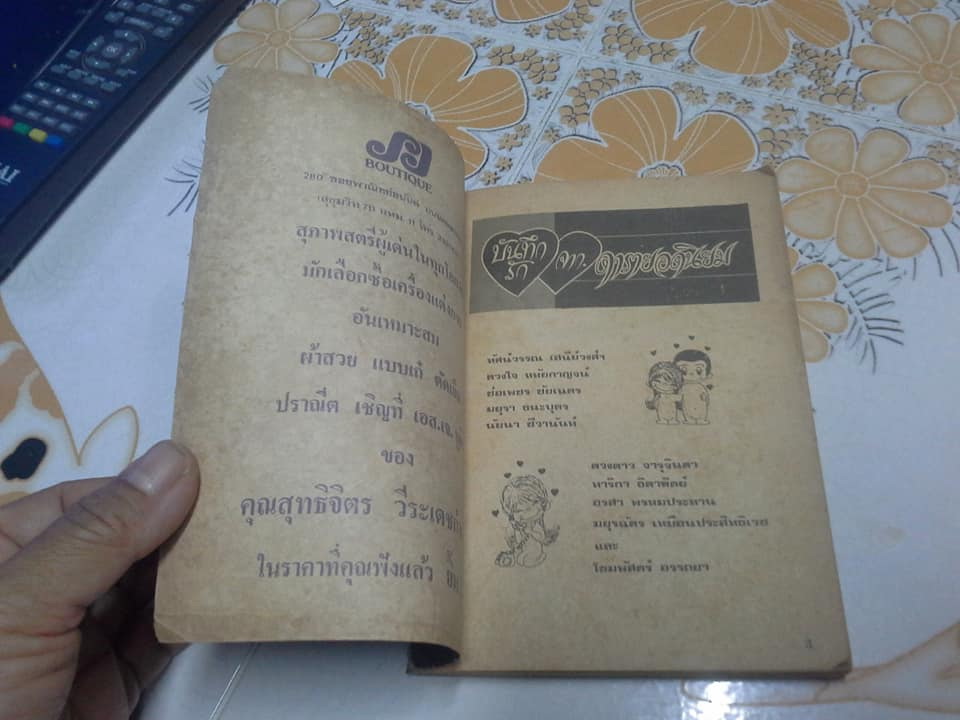 BOUTIQUE
280
สุภาพสตรีผู้เด่นในทุก
มักเลือกซื้อเครื่องแต่งกาย
อันเหมาะสม
ผ้าสวย แบบเก๋ ตัดเย็บ
ปราณีต เชิญที่ เอส.เจ.
ของ
คุณสุทธิจิตร วีระเดช
ในราคาที่คุณฟังแล้ว
บันทึก
รัก
จาก. ดารายอดนิยม
ทัศน์วรรณ เสนีย์วงศ์ฯ
ดวงใจ หทัยกาญจน์
ช่อเพชร ชัยเนตร
มยุรา ธนะบุตร
นัยนา ชีวานันท์
ดวงดาว จารุจินดา
ทาริกา ธิดาทิตย์
อรสา พรหมประทาน
มยุรฉัตร เหมือนประสิทธิเวช
และ
โขมพัสตร์ อรรถยา